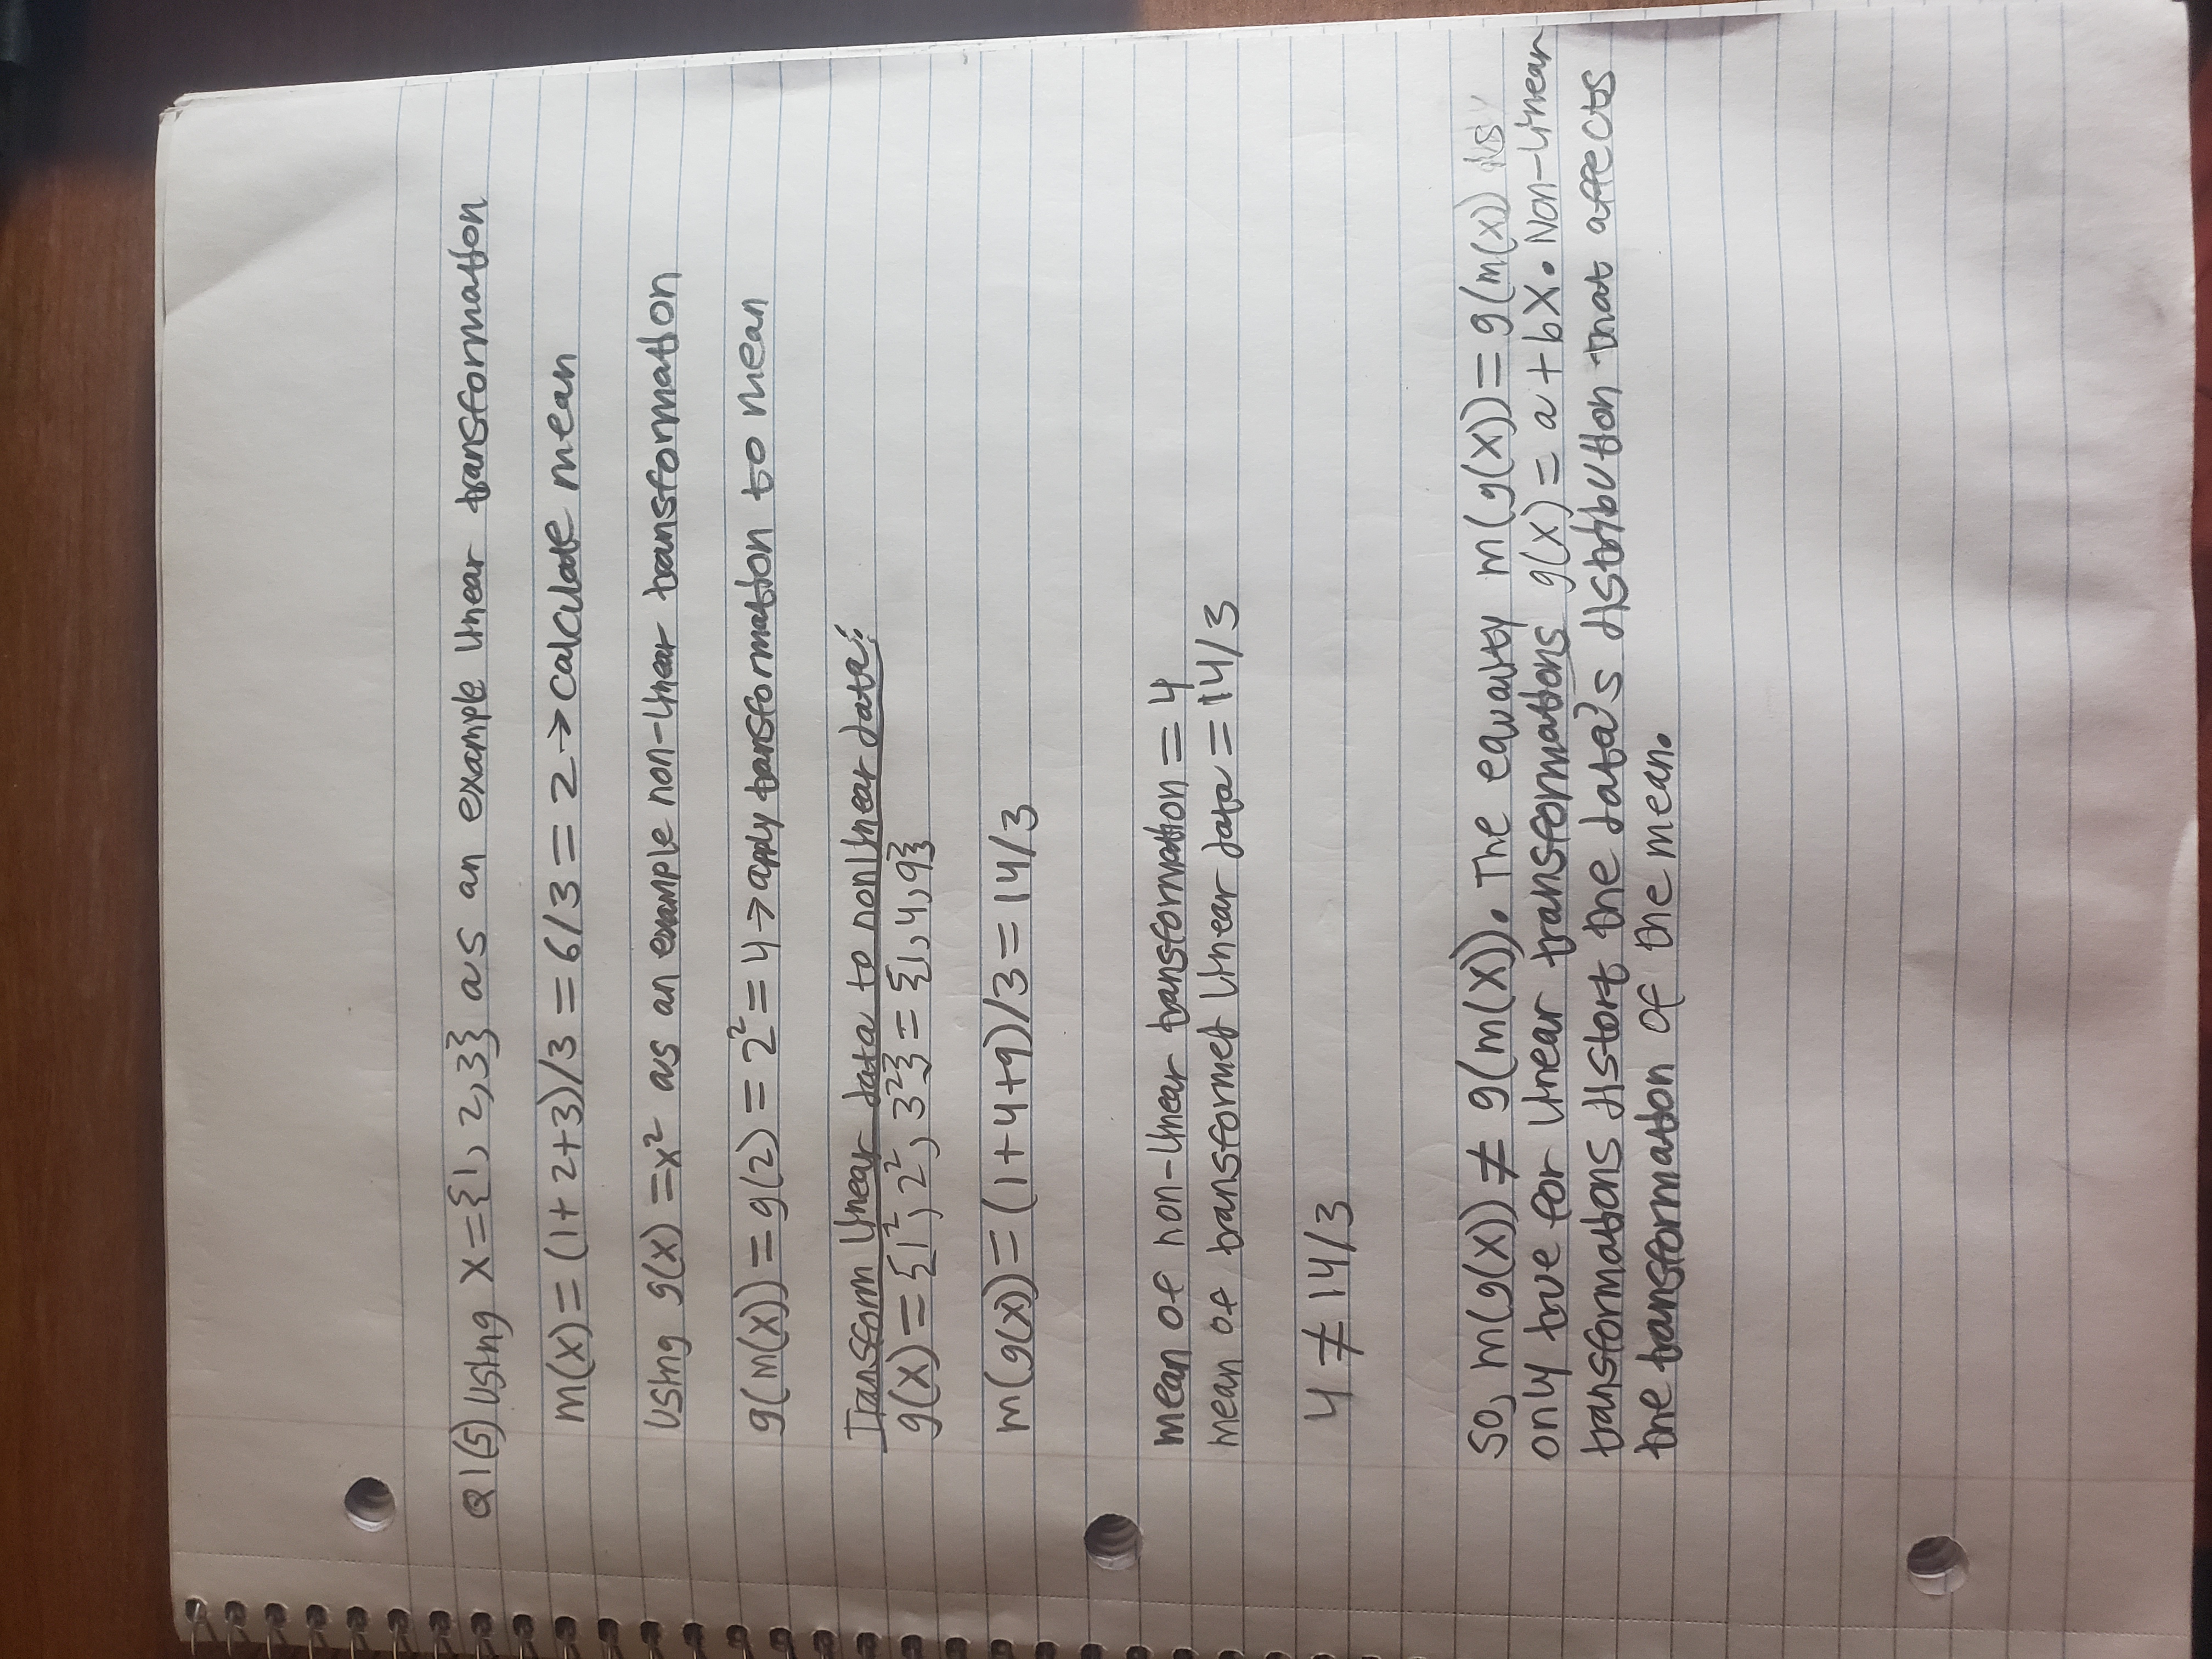 Q1(5) Using X={1, 2, 3} as an example linear transformation
m(X) = (1+2+3)/3 = 6/3 = 2 → calculate mean
Using g(x) = x² as an example non-linear transformation
g(m(X)) = g(2) = 2² = 4 → apply transformation to mean
Transform linear data to nonlinear data:
g(X) = {1², 2², 3²} = {1, 4, 9}
m(g(X)) = (1+4+9)/3 = 14/3
mean of non-linear transformation = 4
mean of transformed linear data = 14/3
4 ≠ 14/3
So, m(g(X)) ≠ g(m(X)). The equality m(g(X)) = g(m(X) is
only true for linear transformations g(X) = a + bX. Non-linear
transformations distort the data's distribution that affects
the transformation of the mean.